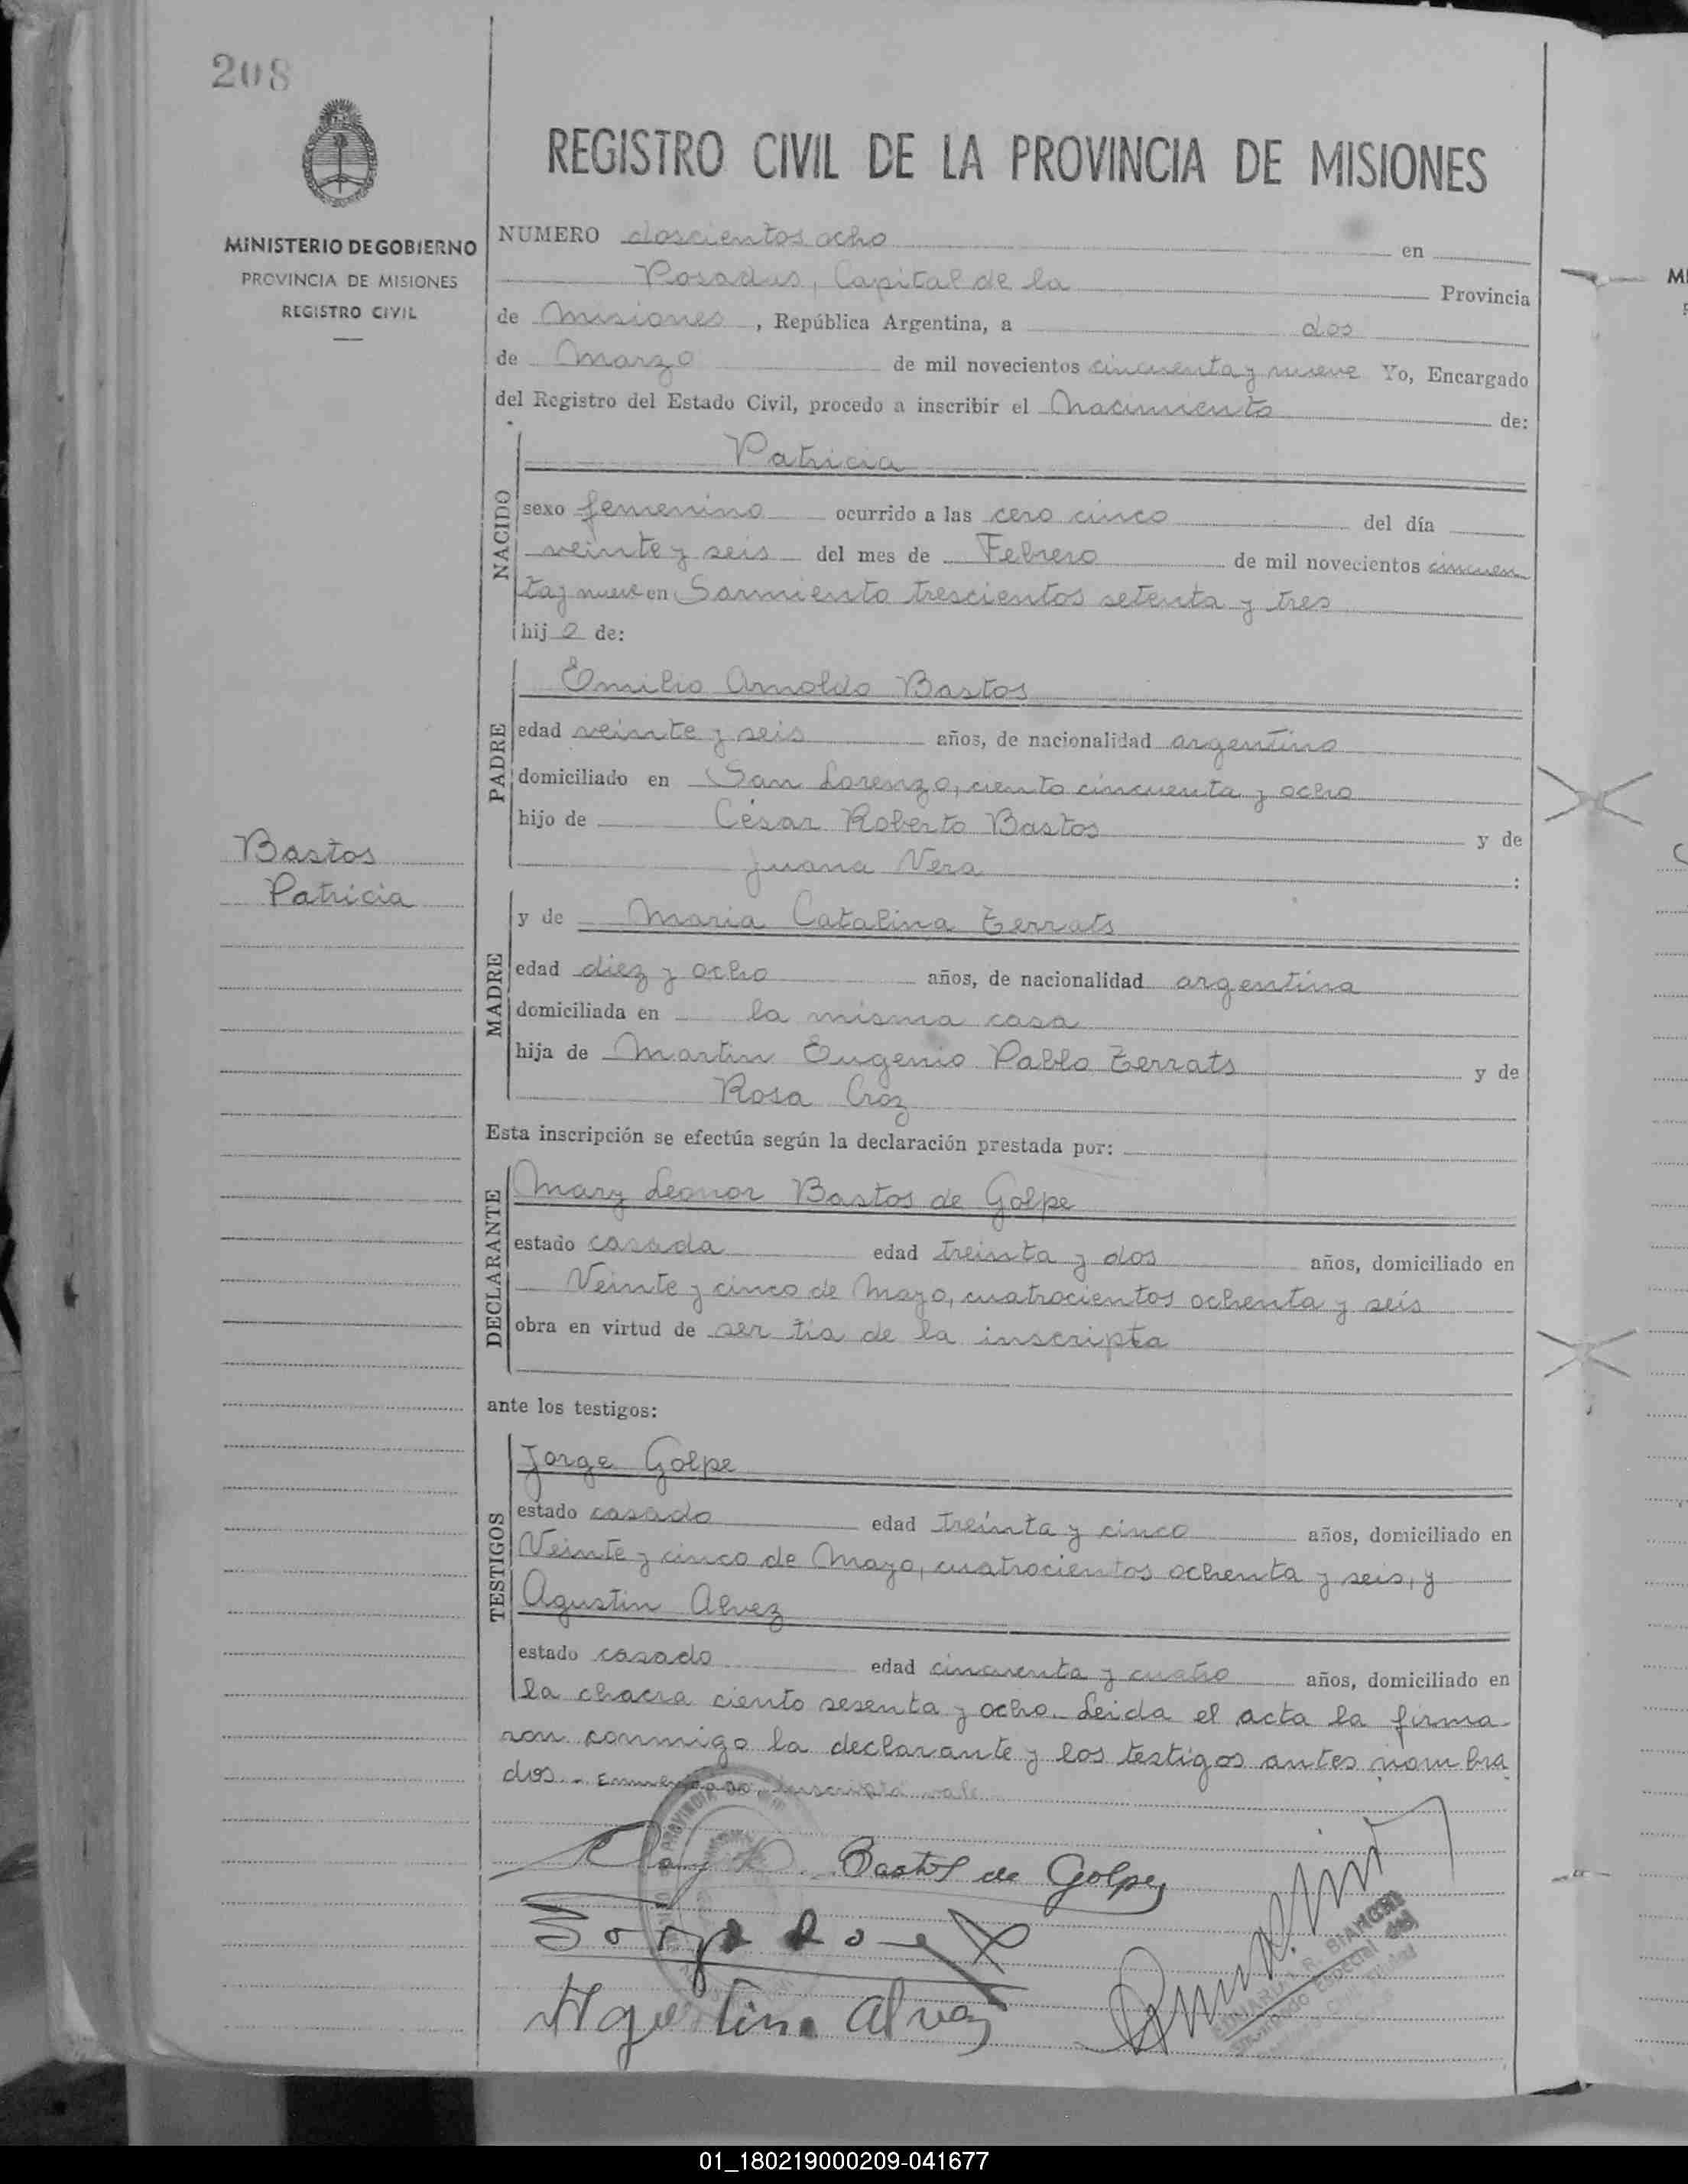 208
REGISTRO CIVIL DE LA PROVINCIA DE MISIONES
MINISTERIO DE GOBIERNO
PROVINCIA DE MISIONES
REGISTRO CIVIL
NUMERO doscientos ocho en
Posadas, Capital de la Provincia
de Misiones, República Argentina, a dos
de Marzo de mil novecientos cincuenta y nueve Yo, Encargado
del Registro del Estado Civil, procedo a inscribir el Nacimiento de:
NACIDO
Patricia
sexo femenino ocurrido a las cero cinco del día
veinte y seis del mes de Febrero de mil novecientos cincuen
ta y nueve en Sarmiento trescientos setenta y tres
hij a de:
PADRE
Emilio Arnoldo Bastos
edad veinte y seis años, de nacionalidad argentino
domiciliado en San Lorenzo, ciento cincuenta y ocho
hijo de César Roberto Bastos y de
Juana Vera :
Bastos
Patricia
MADRE
y de Maria Catalina Zerrats
edad diez y ocho años, de nacionalidad argentina
domiciliada en la misma casa
hija de Martin Eugenio Pablo Zerrats y de
Rosa Croz
Esta inscripción se efectúa según la declaración prestada por:
DECLARANTE
Mary Leonor Bastos de Golpe
estado casada edad treinta y dos años, domiciliado en
Veinte y cinco de Mayo, cuatrocientos ochenta y seis
obra en virtud de ser tía de la inscripta
ante los testigos:
TESTIGOS
Jorge Golpe
estado casado edad treinta y cinco años, domiciliado en
Veinte y cinco de Mayo, cuatrocientos ochenta y seis, y
Agustin Alvez
estado casado edad cincuenta y cuatro años, domiciliado en
la chacra ciento sesenta y ocho. Leida el acta la firma
ron conmigo la declarante y los testigos antes nombra
dos. - Enmendado: inscripta vale
Bastos de Golpe
Agustin Alvez
01_180219000209-041677